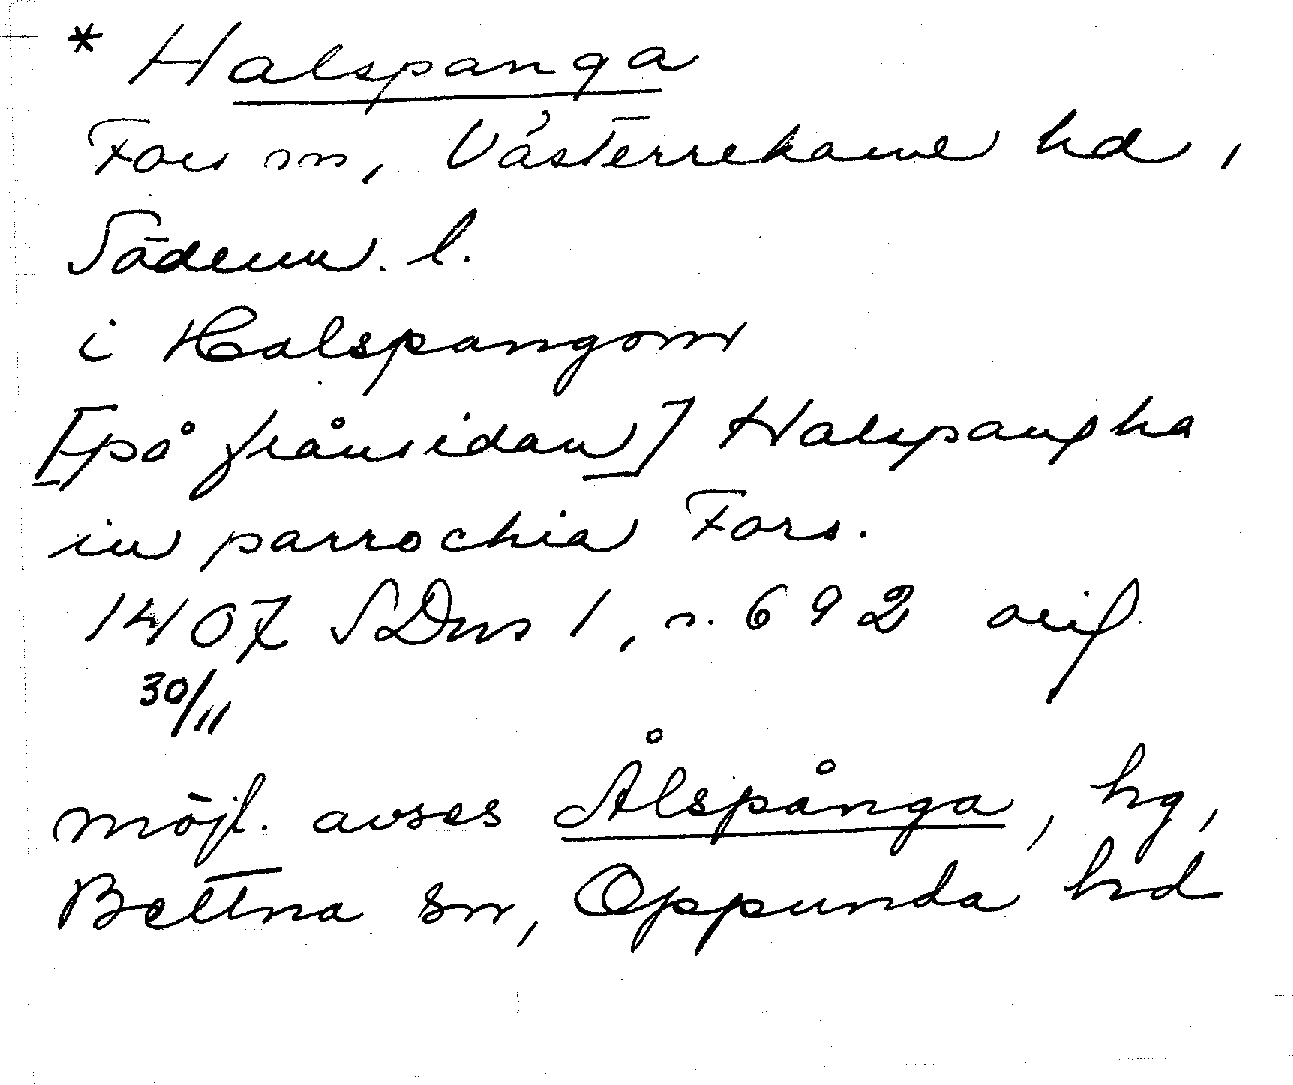 * Halspanga
Fors sn, Västerrekarne hd,
Söderm. l.
i Halspangom
[på frånsidan] Halspangha
in parrochia Fors.
1407 SDns 1, s. 692 orig
30/11
möjl. avses Ålspånga, hg,
Bettna sn, Oppunda hd